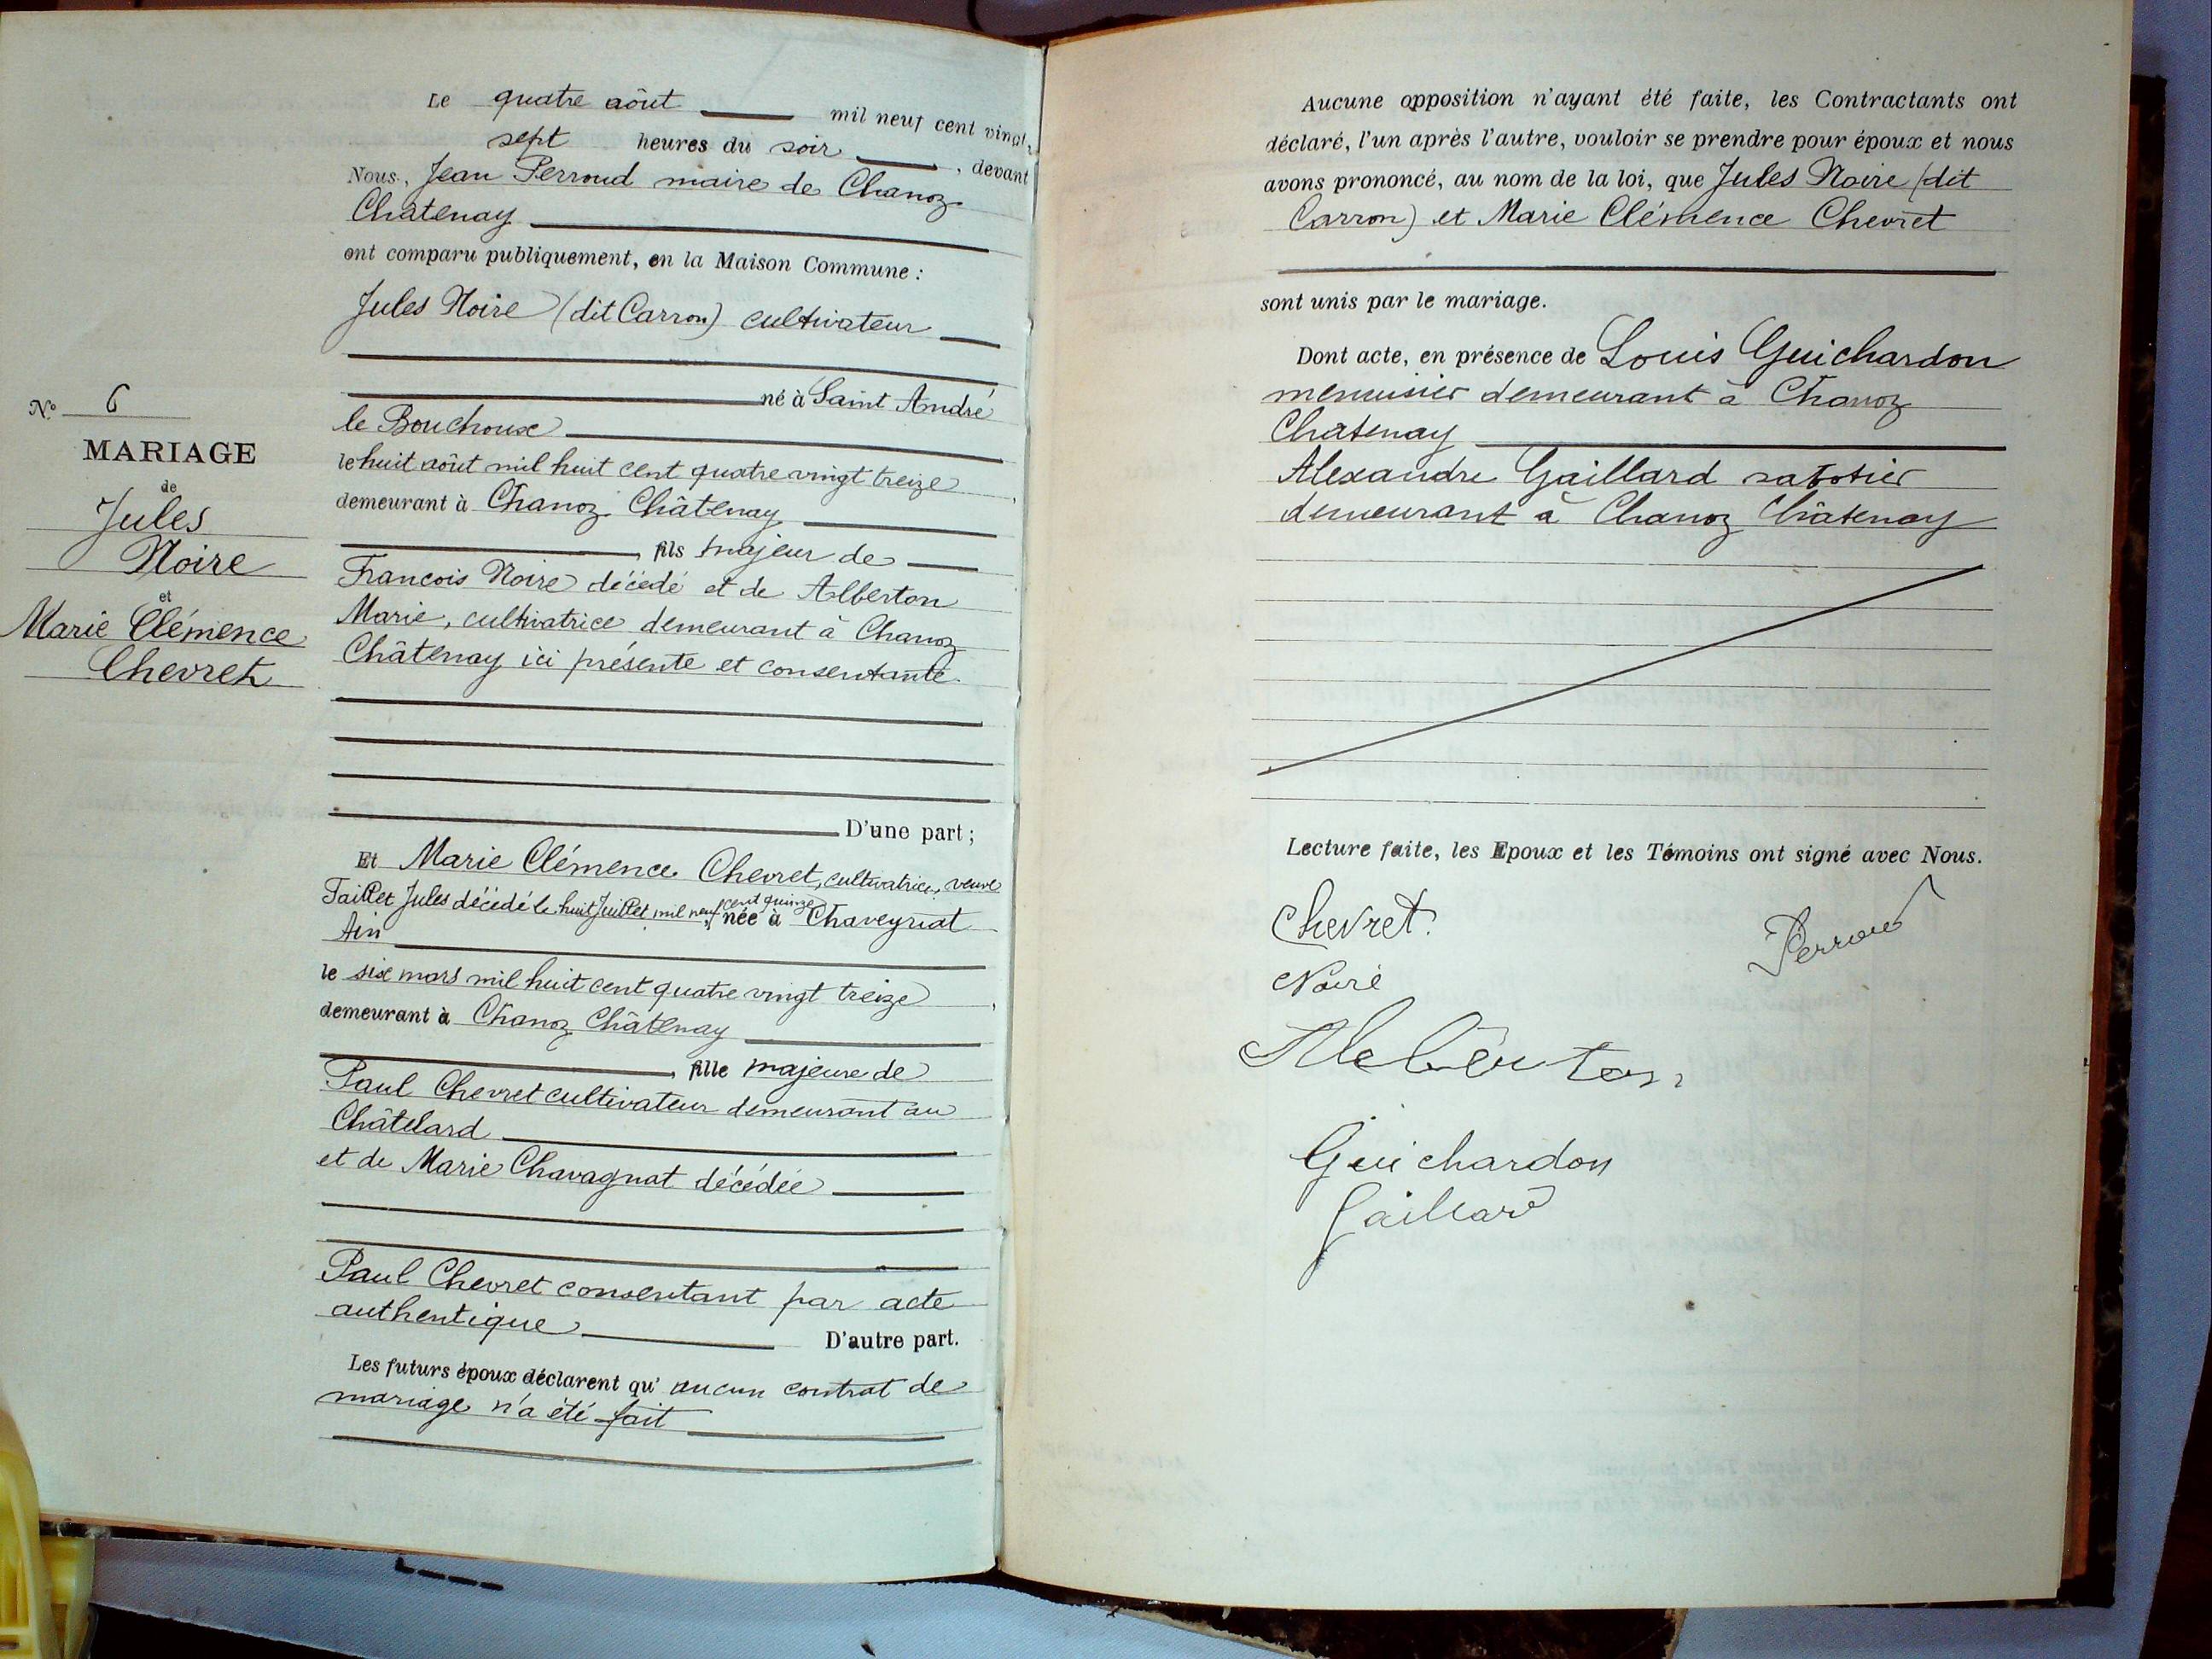 Le quatre août mil neuf cent vingt,
sept heures du soir, devant
Nous, Jean Perroud maire de Chanoz
Châtenay
ont comparu publiquement, en la Maison Commune :
Jules Noire (dit Carron) cultivateur
né à Saint André
le Bouchoux
le huit août mil huit cent quatre vingt treize,
demeurant à Chanoz Châtenay
, fils majeur de
François Noire décédé et de Alberton
Marie, cultivatrice demeurant à Chanoz
Châtenay ici présente et consentante.
D'une part ;
Et Marie Clémence Chevret, cultivatrice, veuve
Taillet Jules décédé le huit Juillet mil neuf cent quinze née à Chaveyriat
Ain
le six mars mil huit cent quatre vingt treize,
demeurant à Chanoz Châtenay
, fille majeure de
Paul Chevret cultivateur demeurant au
Châtelard
et de Marie Chavagnat décédée
Paul Chevret consentant par acte
authentique D'autre part.
Les futurs époux déclarent qu' aucun contrat de
mariage n'a été fait
N° 6
MARIAGE
de
Jules
Noire
et
Marie Clémence
Chevret
Aucune opposition n'ayant été faite, les Contractants ont
déclaré, l'un après l'autre, vouloir se prendre pour époux et nous
avons prononcé, au nom de la loi, que Jules Noire (dit
Carron) et Marie Clémence Chevret
sont unis par le mariage.
Dont acte, en présence de Louis Guichardon
menuisier demeurant à Chanoz
Chatenay
Alexandre Gaillard sabotier
demeurant à Chanoz Châtenay
Lecture faite, les Epoux et les Témoins ont signé avec Nous.
Chevret
Perroud
Noire
Guichardon
Gaillard